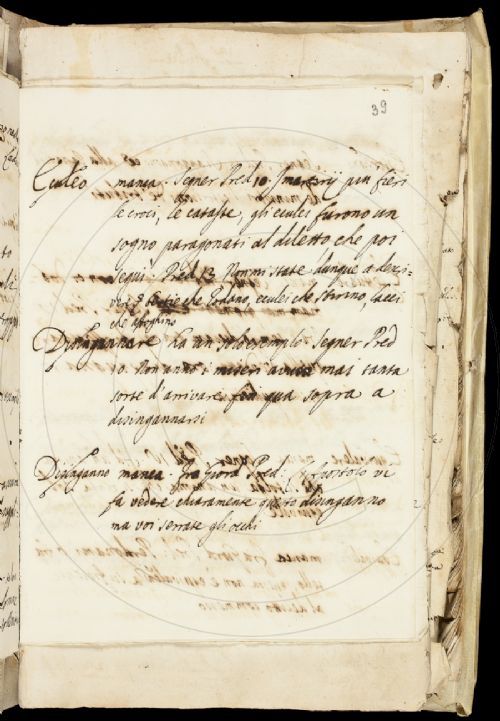 39
Eculeo manca. Segner Pred 10. I martirij piu fieri
le croci, le cataste, gli eculei furono un
sogno paragonati al diletto, che poi
seguì. Pred. 12 Non mi state dunque a
che rodano, eculei che stirino, lacci
che affoghino
Disingannare ha un solo esempio Segner Pred
o. Non anno i miseri avuta mai tanta
sorte d'arrivare fin qua sopra a
disingannarsi
Disinganno manca. Fra Giord Pred: Cristo vi
fa vedere chiaramente questo disinganno
ma voi serrate gli occhi